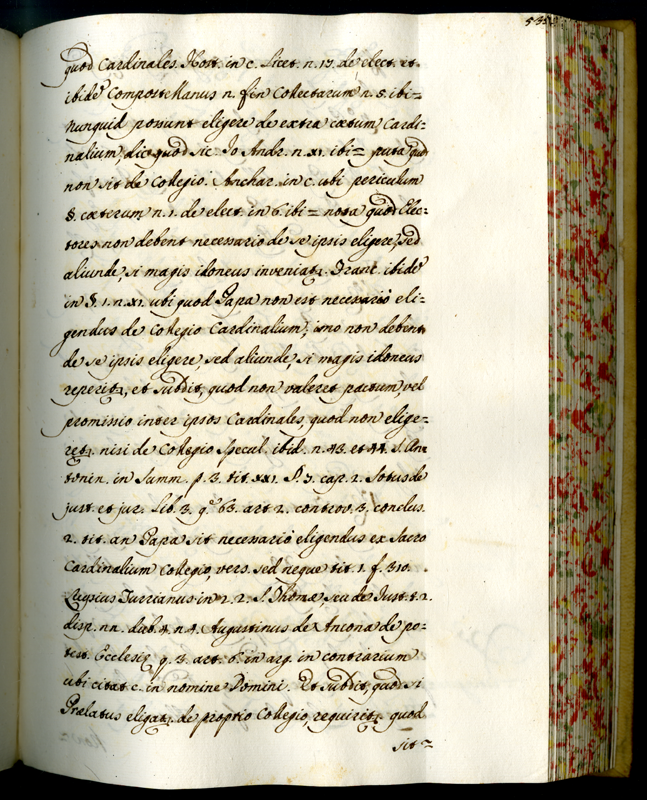 535
quod Cardinales. Host. in c. Licet. n. 17. de elect. et.
ibidē Compostellanus n. fin Collectarum n. 5. ibi=
nunquid possunt eligere de extra cœtum Cardi=
nalium, dic quod sic. Io Andr. n. xi. ibi= puta quod
non sit de Collegio. Anchar. in c. ubi periculum
§. cæterum n. 1. de elect. in 6. ibi= nota quod Elec=
tores non debent necessario de se ipsis eligere, sed
aliunde, si magis idoneus inveniatr. Franc. ibidē
in §. 1. n. xi. ubi quod Papa non est necessario eli=
gendus de Collegio Cardinalium, imo non debent
de se ipsis eligere, sed aliunde, si magis idoneus
reperitr, et subdit, quod non valeret pactum, vel
promissio inter ipsos Cardinales, quod non elige=
retr. nisi de Collegio Specul. ibid. n. 43. et 44. S. An
tonin. in Summ. p. 3. tit. xxi. cap. 2. Sotus de
just. et jur. Lib. 3. q. 63. art 2. controv. 3. conclus.
2. tit. an Papa sit necessario eligendus ex Sacro
Cardinalium Collegio, vers. sed neque tit. 1. f. 310.
Turrianus in 2. 2. S. Thomæ, seu de Just. t. 2.
disp. nn. dub. 4. n. 4. Augustinus de Ancona de po=
test. Ecclesię q. 3. art. 6. in arg. in contrarium
ubi citat c. in nomine Domini. Et subdit, quod si
Prælatus eligatr. de proprio Collegio, requiritr. quod
sit=